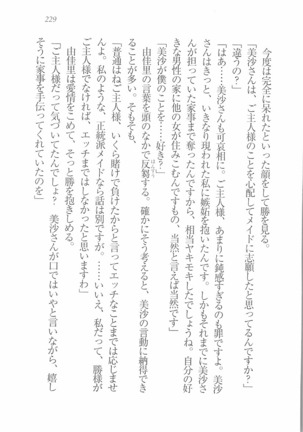 229
今度は完全に呆れたといった顔をして勝を見る。
「違うの？」
「美沙さんは、ご主人様のことを心配してメイドに志願したと思ってるんですか？」
「はあ……美沙さんも可哀相に。ご主人様、あまりに鈍感すぎるのも罪ですよ。美沙
さんはきっと、いきなり現われた私に嫉妬を抱いたんです。しかもそれまでに美沙さ
んが担っていた家事まで奪ったんですから、相当ヤキモキしたでしょうね。自分の好
きな男性の家に他の女が住みこむんですもの、当然と言えば当然です」
「美沙が僕のことを……好き？」
由佳里の言葉を頭のなかで反芻する。確かにそう考えると、美沙の言動に納得でき
ることが多い。そもそも、
「普通はねご主人様、いくら賭けで負けたからと言ってエッチなことまでは応じませ
んよ。私のような、正統派メイドなら話は別ですが。……いいえ、私だって、勝様が
ご主人様でなければ、エッチまではしなかったと思いますわ」
由佳里は愛情をこめて、そっと勝を抱きしめる。
「ご主人様だって気づいてたんでしょ？　美沙さんが口ではいやと言いながら、嬉し
そうに家事を手伝ってくれていたのを」